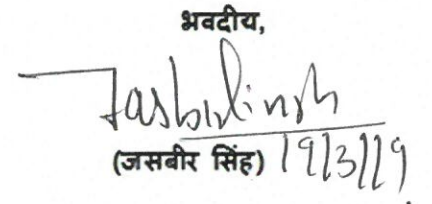 भवदीय,
Jasbir Singh
(जसबीर सिंह) 19/3/19